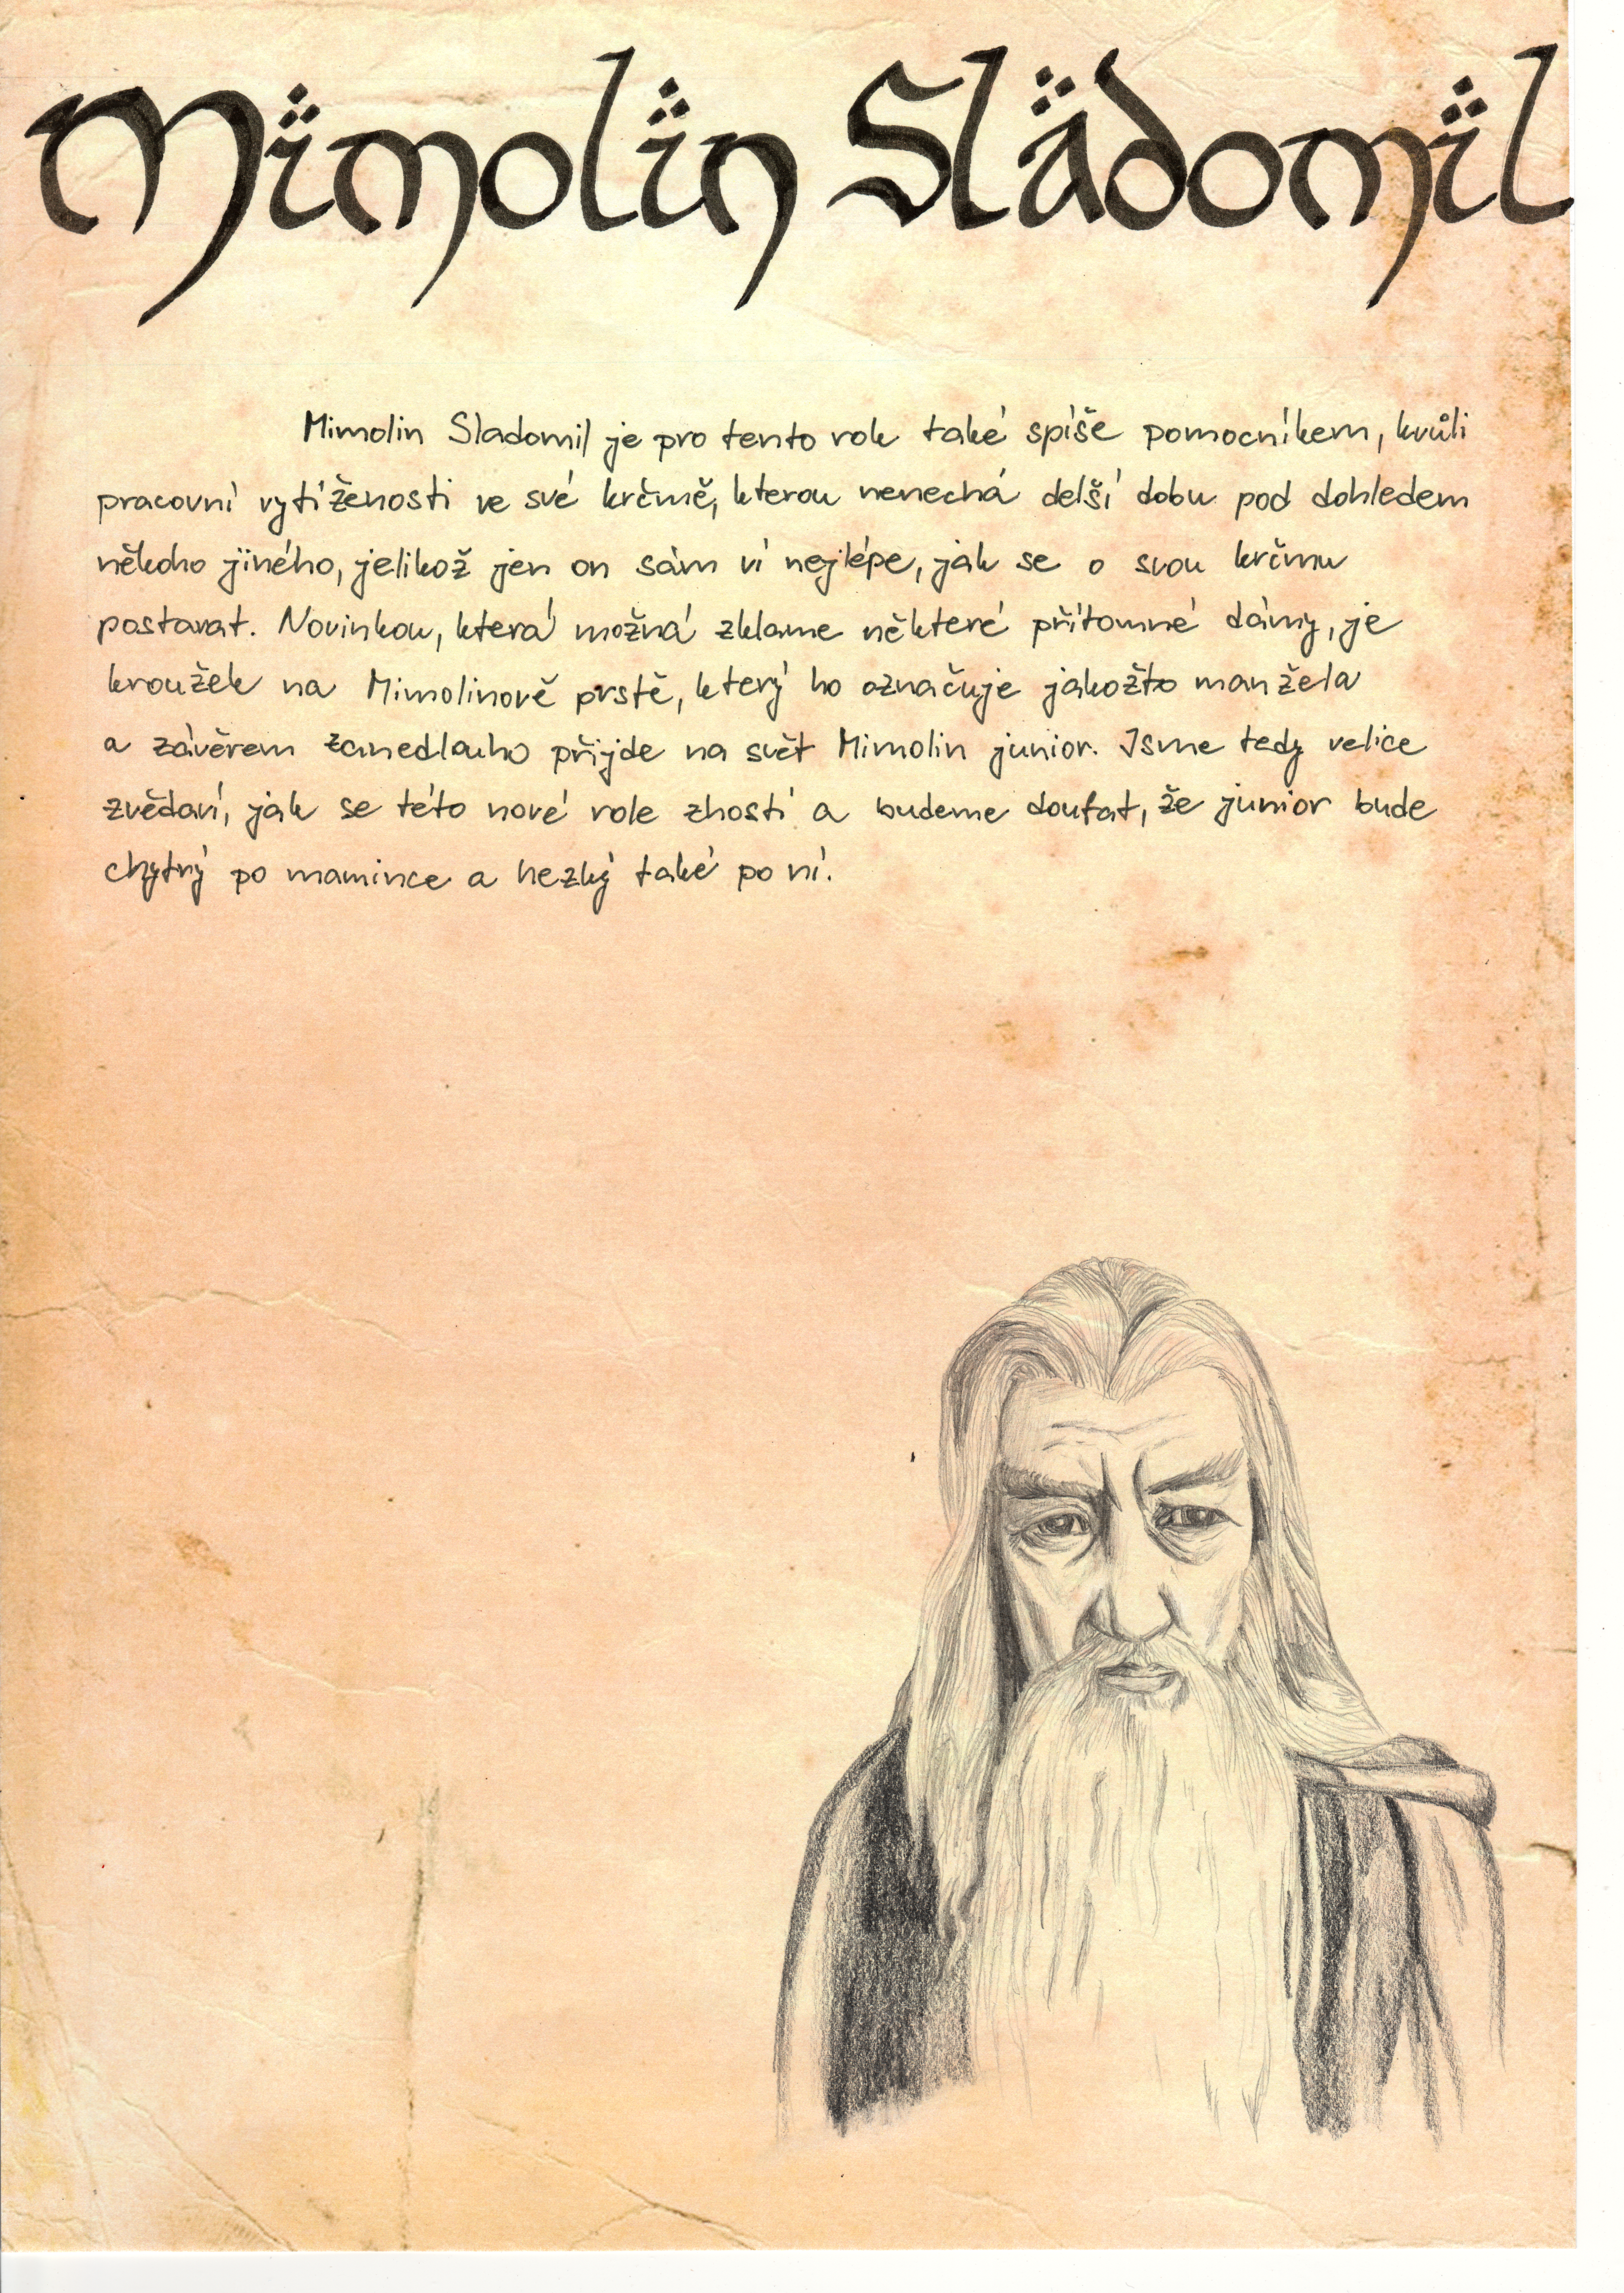 Mimolin Sladomil
Mimolin Sladomil je pro tento rok také spíše pomocníkem, kvůli
pracovní vytíženosti ve své krčmě, kterou nenechá delší dobu pod dohledem
někoho jiného, jelikož jen on sám ví nejlépe, jak se o svou krčmu
postarat. Novinkou, která možná zklame některé přítomné dámy, je
kroužek na Mimolinově prstě, který ho označuje jakožto manžela
a závěrem zanedlouho přijde na svět Mimolin junior. Jsme tedy velice
zvědaví, jak se této nové role zhostí a budeme doufat, že junior bude
chytrý po mamince a hezký také po ní.